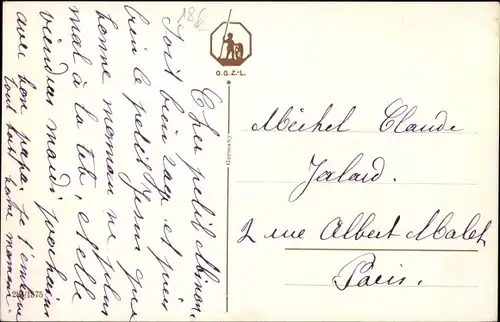 186
O.G.Z.-L.
Germany
Cher petit Mimon.
Soit bien sage, et prie
bien le petit Jesus que
bonne maman ne plus
mal à la tete, et elle
viendras mardi prochains
avec bon papa. Je t'embrasse
tout but bonne maman.
Michel Claude
Jalard.
2 rue Albert Malet
Paris.